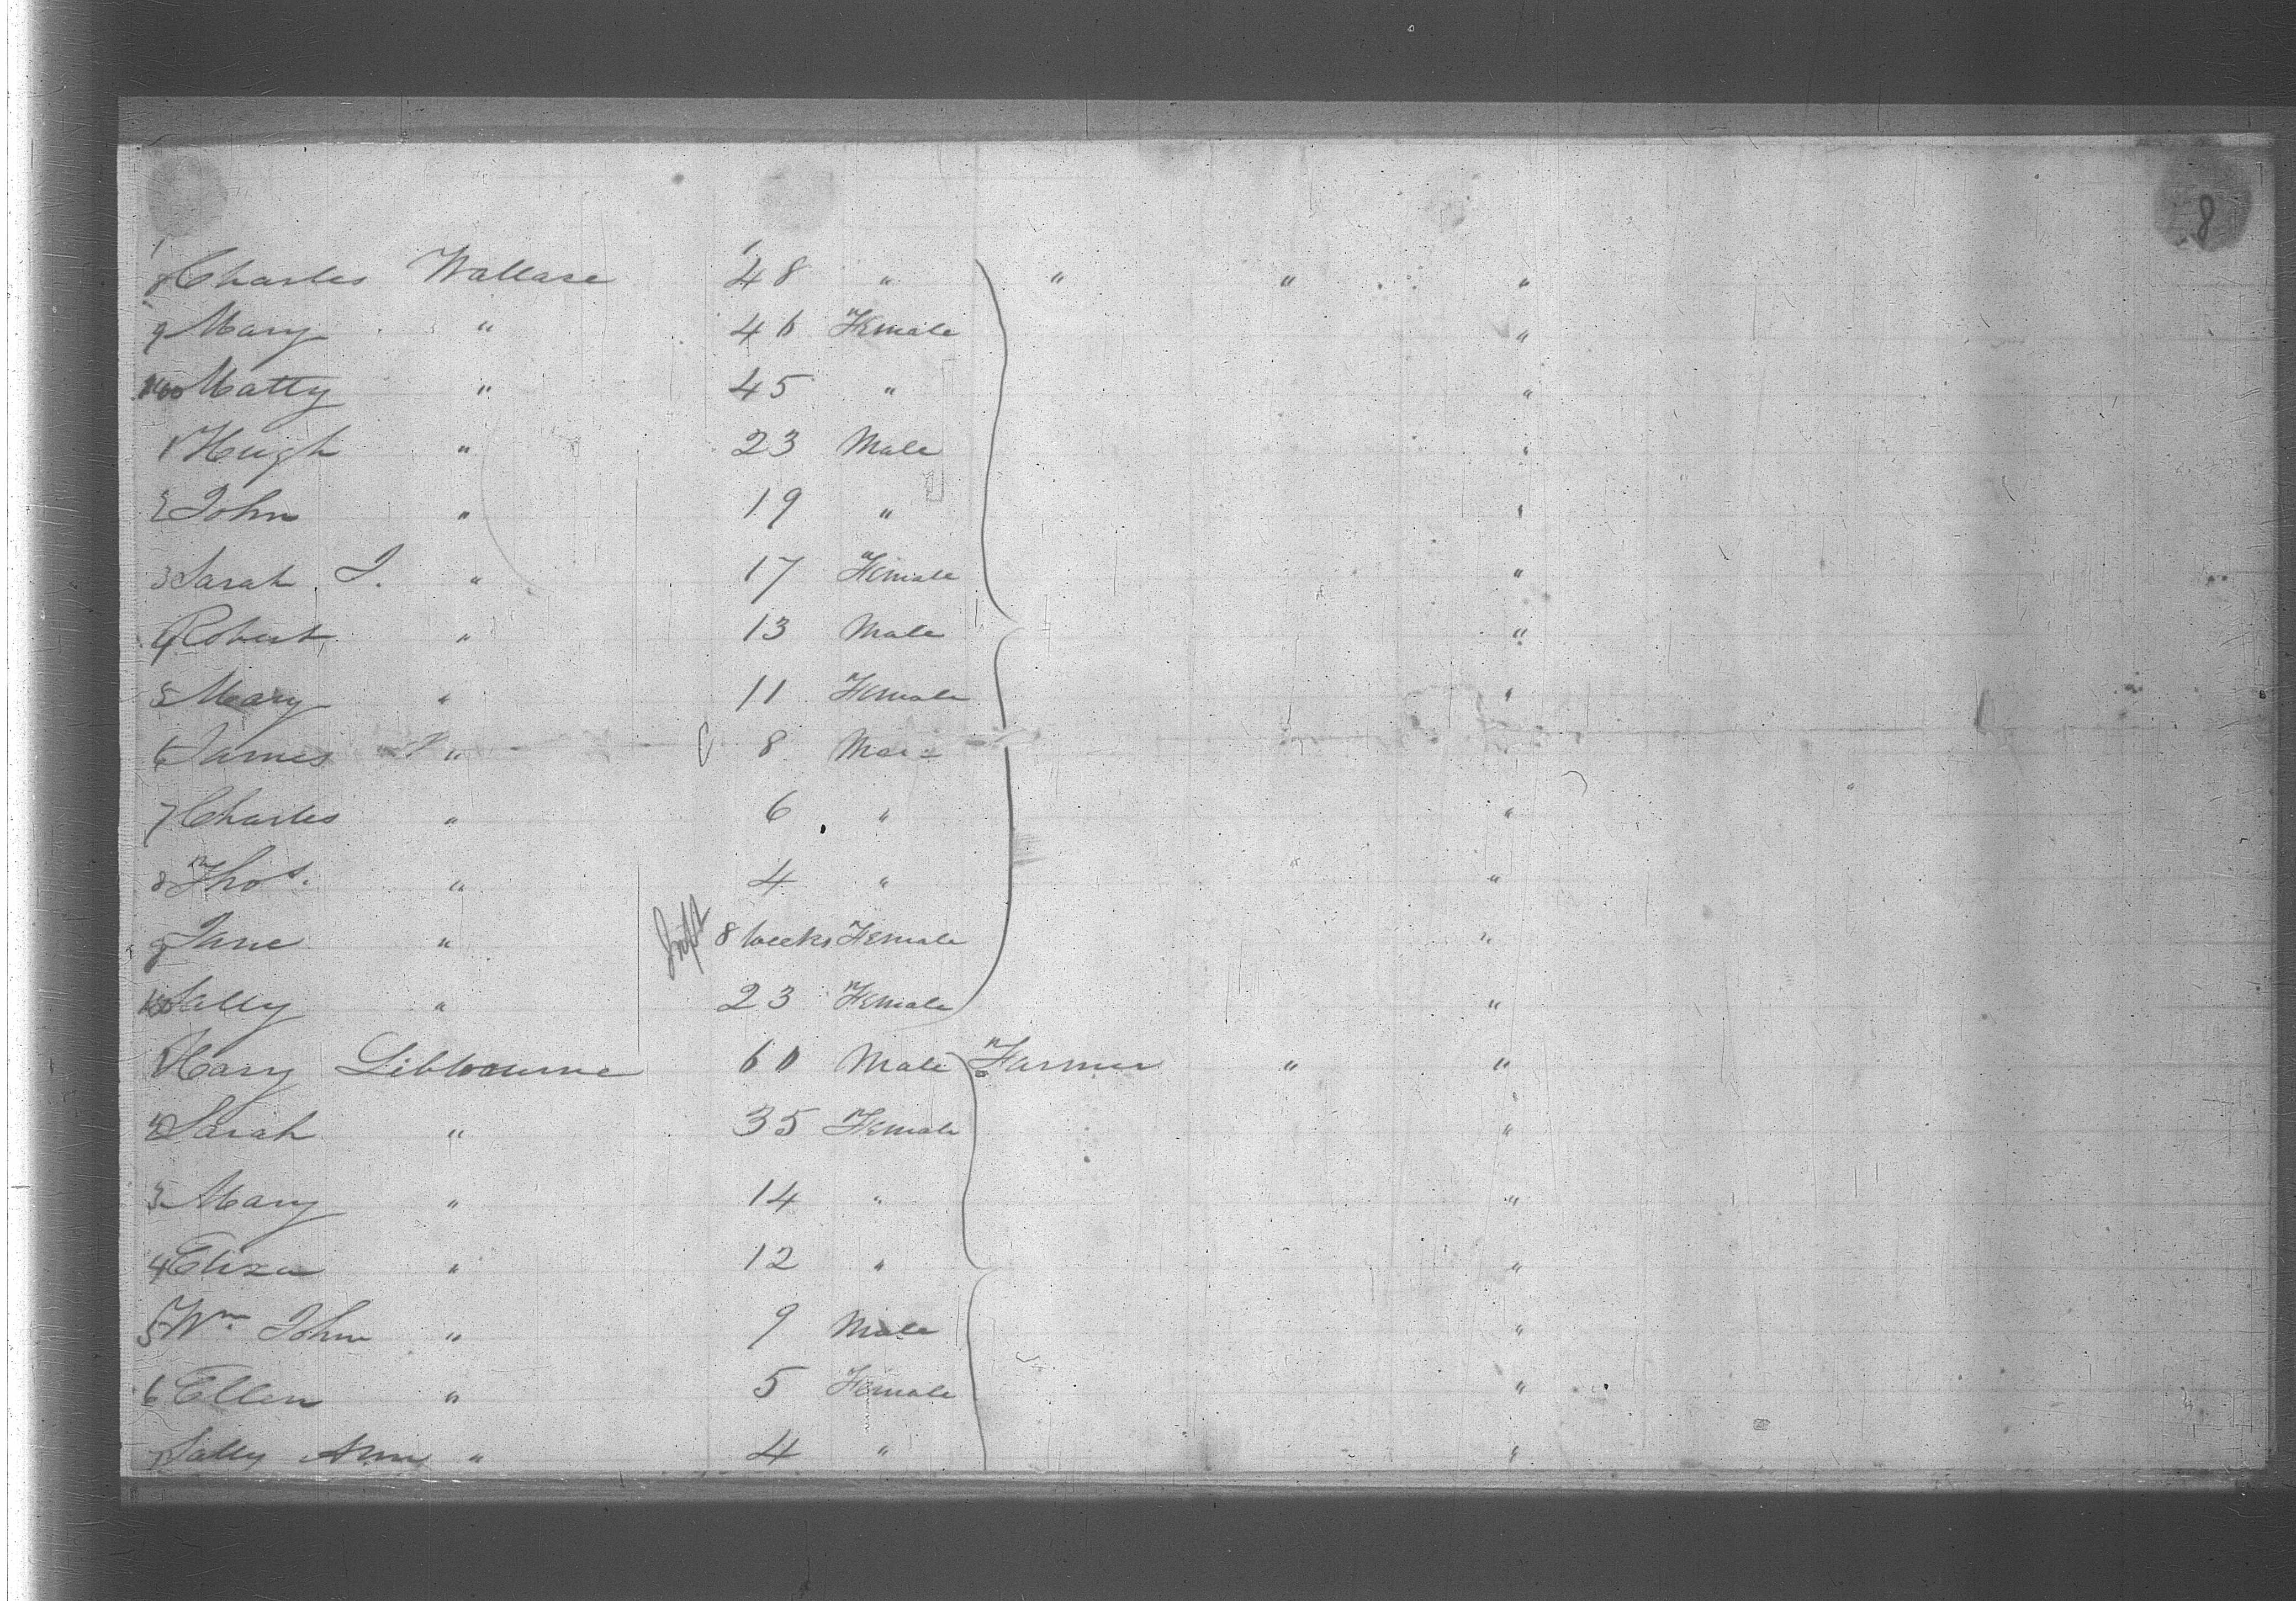 8
8 Charles Wallace 48 " " " "
9 Mary " 46 Female "
Matty " 45 " "
1 Hugh " 23 Male "
2 John " 19 " "
3 Sarah J. " 17 Female "
4 Robert " 13 Male "
5 Mary " 11 Female "
6 James " 8 Male "
7 Charles " 6 " "
8 Thos. " 4 " "
9 Jane " 8 weeks Female "
Sally " 23 Female "
1 60 Male Farmer " "
2 Sarah " 35 Female "
3 Mary " 14 " "
4 Eliza " 12 " "
5 Wm. John " 9 Male "
6 Ellen " 5 Female "
7 Sally Ann " 4 " "